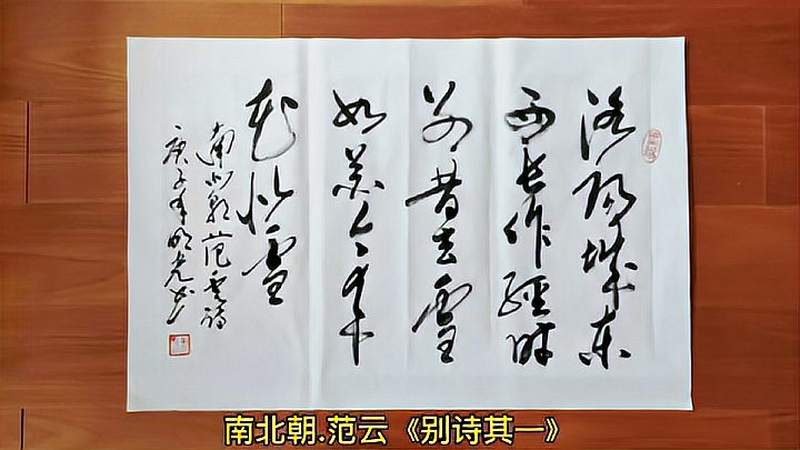 洛陽城東
西長作經時
别昔去雪
如花今来
花似雪
南北朝范雲詩
庚子年明光书
南北朝.范云《别诗其一》